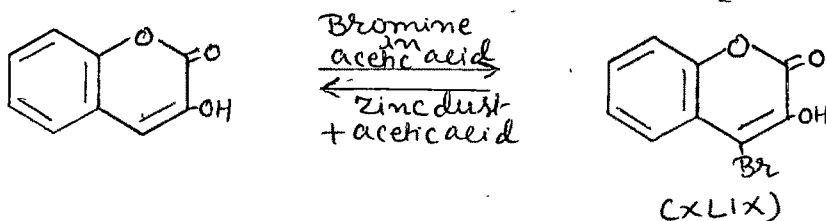 Bromine
in
acetic acid
zinc dust
+ acetic acid
O
O
OH
O
O
OH
Br
(XLIX)